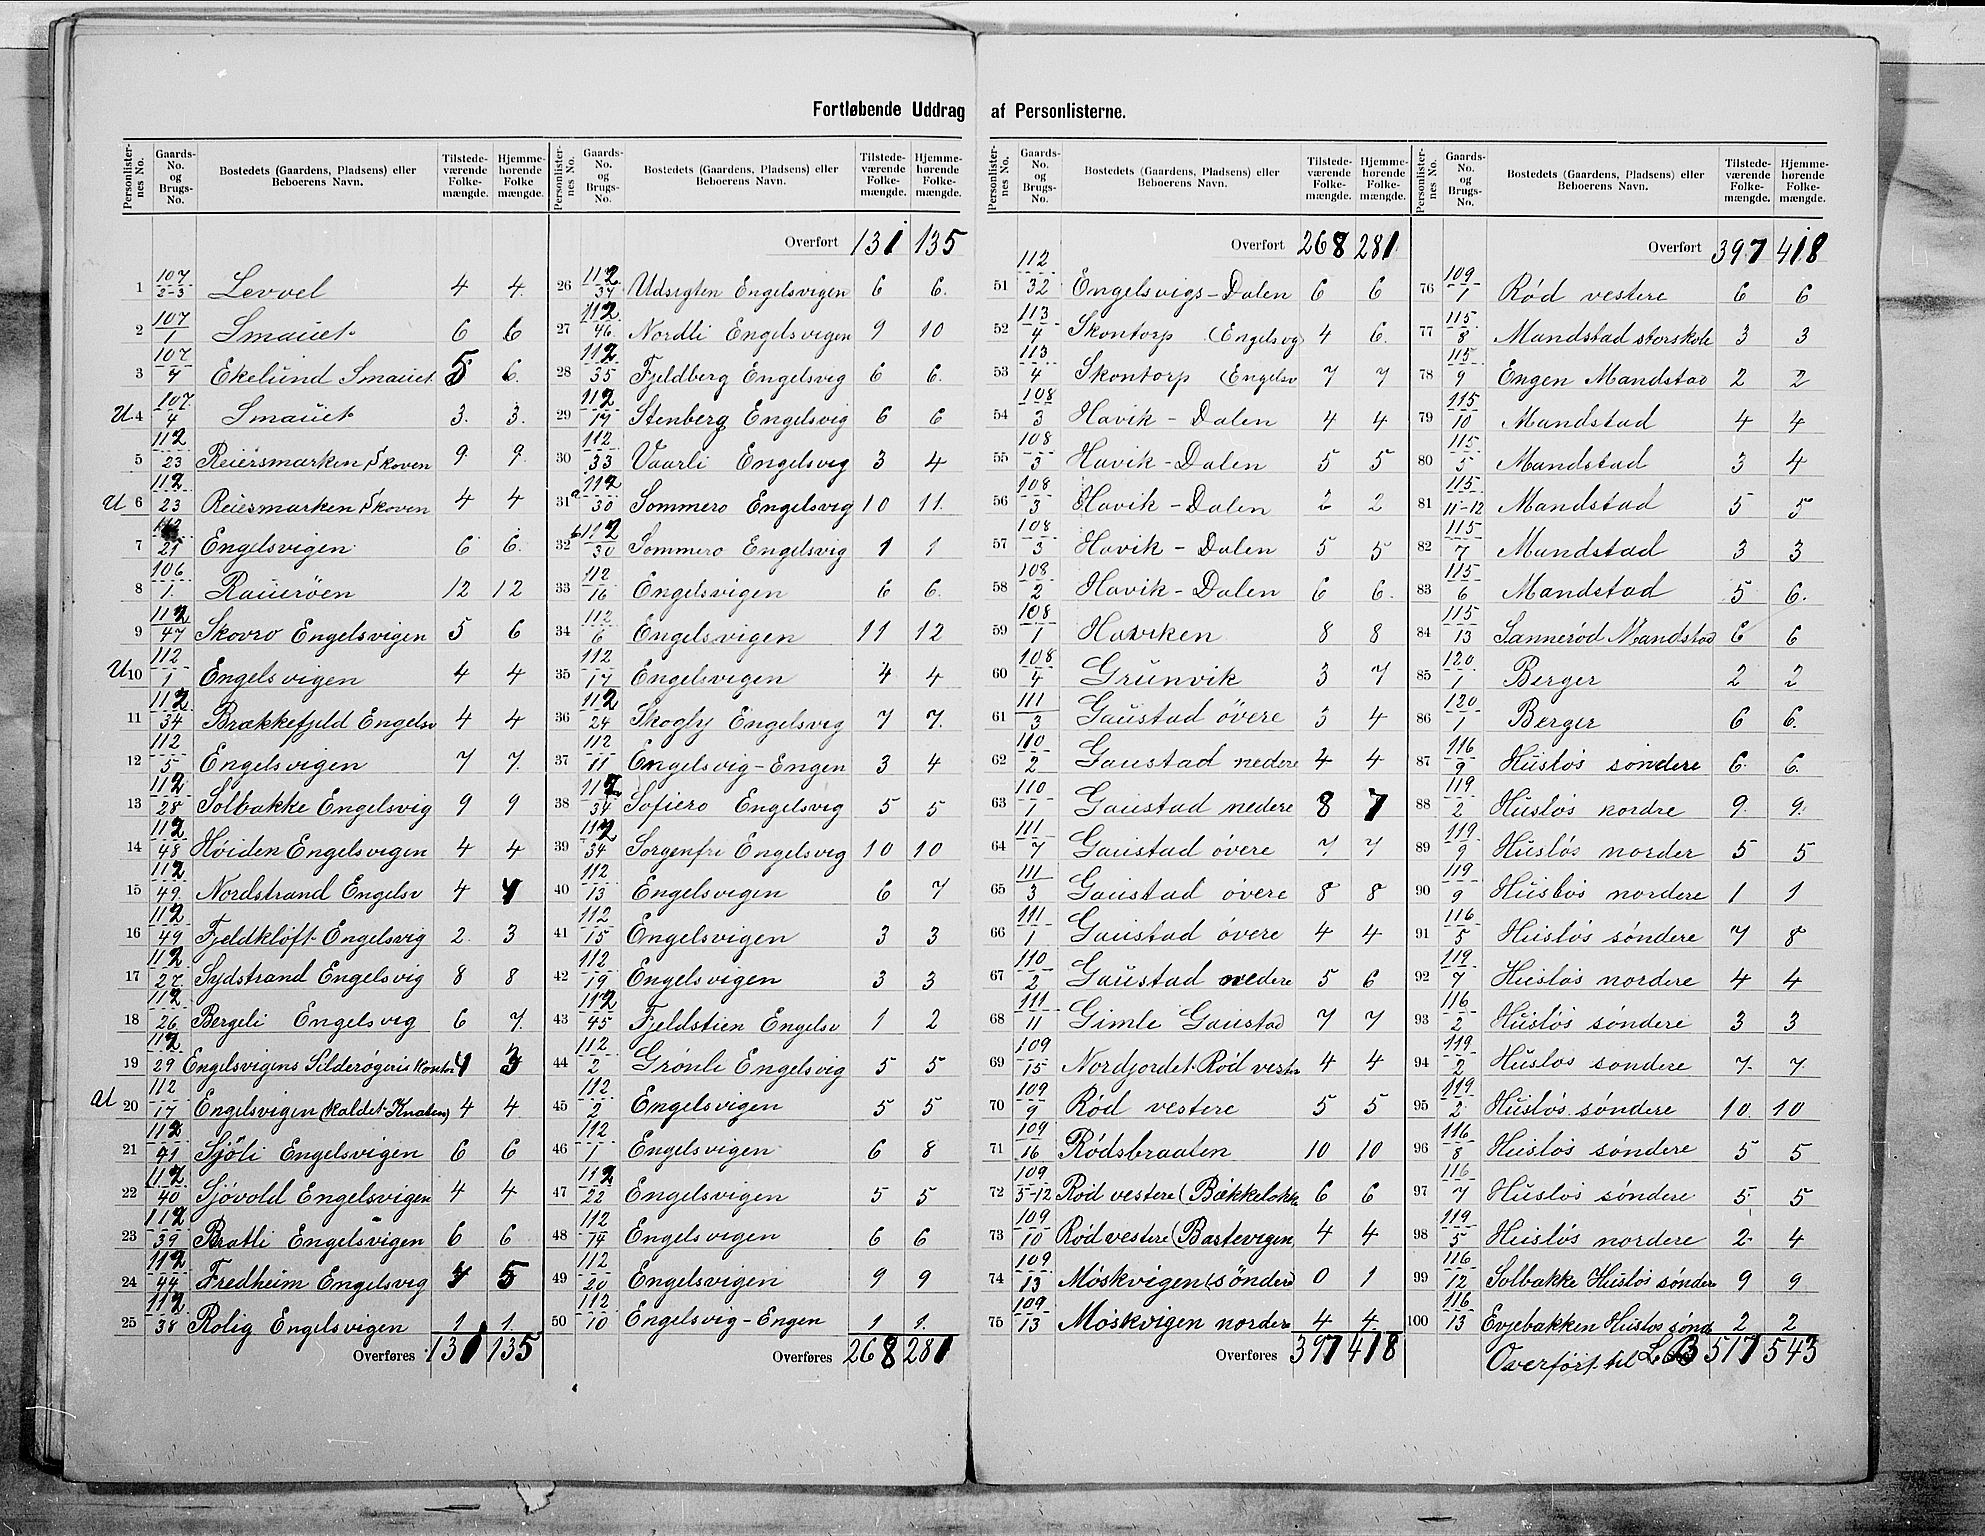 Fortløbende Uddrag af Personlisterne.
Personlisternes No. | Gaards-No. og Brugs-No. | Bostedets (Gaardens, Pladsens) eller Beboerens Navn. | Tilstedeværende Folkemængde. | Hjemmehørende Folkemængde.
1 107/2-3 Levvel 4 4
2 107/1 Smauet 6 6
3 107/4 Ekelund Smauet 5 6
U 4 107/4 Smauet 3 3
5 112/23 Reiersmarken, Skoven 9 9
U 6 112/23 Reiesmarken, Skoven 4 4
7 112/21 Engelsvigen 6 6
8 106/1 Rauerøen 12 12
9 112/47 Skovro Engelsvigen 5 6
U 10 112/1 Engelsvigen 4 4
11 112/34 Brækkefjeld Engelsv 4 4
12 112/5 Engelsvigen 7 7
13 112/28 Solbakke Engelsvig 9 9
14 112/48 Høiden Engelsvigen 4 4
15 112/49 Nordstrand Engelsv 4 4
16 112/49 Fjeldkløft Engelsvig 2 3
17 112/27 Sydstrand Engelsvig 8 8
18 112/26 Bergeli Engelsvig 6 7
19 112/29 Engelsvigens Silderøgeris Kontor 4 3
U 20 112/17 Engelsvigen (kaldet Knatten) 4 4
21 112/41 Sjøli Engelsvigen 6 6
22 112/40 Sjøvold Engelsvigen 4 4
23 112/39 Bratli Engelsvigen 6 6
24 112/44 Fredheim Engelsvig 4 5
25 112/38 Rolig Engelsvigen 1 1
Overføres 131 135
Personlisternes No. | Gaards-No. og Brugs-No. | Bostedets (Gaardens, Pladsens) eller Beboerens Navn. | Tilstedeværende Folkemængde. | Hjemmehørende Folkemængde.
Overført 131 135
26 112/37 Udsigten Engelsvigen 6 6
27 112/46 Nordli Engelsvigen 9 10
28 112/35 Fjeldberg Engelsvig 6 6
29 112/19 Stenberg Engelsvig 6 6
30 112/33 Vaarli Engelsvig 3 4
31 a 112/30 Sommero Engelsvig 10 11
32 b 112/30 Sommero Engelsvig 1 1
33 112/16 Engelsvigen 6 6
34 112/6 Engelsvigen 11 12
35 112/17 Engelsvigen 4 4
36 112/24 Skogly Engelsvig 7 7
37 112/11 Engelsvig-Engen 3 4
38 112/34 Sofiero Engelsvig 5 5
39 112/34 Sorgenfri Engelsvig 10 10
40 112/13 Engelsvigen 6 7
41 112/15 Engelsvigen 3 3
42 112/19 Engelsvigen 3 3
43 112/45 Fjeldstien Engelsv 1 2
44 112/2 Grønli Engelsvig 5 5
45 112/2 Engelsvigen 5 5
46 112/1 Engelsvigen 6 8
47 112/22 Engelsvigen 5 5
48 112/14 Engelsvigen 6 6
49 112/20 Engelsvigen 9 9
50 112/10 Engelsvig-Engen 1 1
Overføres 268 281
Personlisternes No. | Gaards-No. og Brugs-No. | Bostedets (Gaardens, Pladsens) eller Beboerens Navn. | Tilstedeværende Folkemængde. | Hjemmehørende Folkemængde.
Overført 268 281
51 112/32 Engelsvigs-Dalen 6 6
52 113/4 Skontorp (Engelsvg 4 6
53 113/4 Skontorp (Engelsv 7 7
54 108/3 Havik-Dalen 4 4
55 108/3 Havik-Dalen 5 5
56 108/3 Havik-Dalen 2 2
57 108/3 Havik-Dalen 5 5
58 108/2 Havik-Dalen 6 6
59 108/1 Haviken 8 8
60 108/4 Grunvik 3 7
61 111/3 Gaustad øvere 3 4
62 110/2 Gaustad nedere 4 4
63 110/1 Gaustad nedere 8 7
64 111/7 Gaustad øvere 7 7
65 111/3 Gaustad øvere 8 8
66 111/1 Gaustad øvere 4 4
67 110/2 Gaustad nedere 5 6
68 111/11 Gimle Gaustad 7 7
69 109/15 Nordjordet Rød vestre 4 4
70 109/9 Rød vestere 5 5
71 109/16 Rødsbraaten 10 10
72 109/5-12 Rød vestere (Bækkeløkke 6 6
73 109/10 Rød vestere (Bastevigen 4 4
74 109/13 Møskvigen (søndere) 0 1
75 109/13 Møskvigen nordere 4 4
Overføres 397 418
Personlisternes No. | Gaards-No. og Brugs-No. | Bostedets (Gaardens, Pladsens) eller Beboerens Navn. | Tilstedeværende Folkemængde. | Hjemmehørende Folkemængde.
Overført 397 418
76 109/1 Rød vestere 6 6
77 115/8 Mandstad storskole 3 3
78 115/9 Engen Mandstad 2 2
79 115/10 Mandstad 4 4
80 115/5 Mandstad 3 4
81 115/11-12 Mandstad 5 5
82 115/7 Mandstad 3 3
83 115/6 Mandstad 5 6
84 115/13 Sannerød Mandstad 6 6
85 120/1 Berger 2 2
86 120/1 Berger 6 6
87 116/9 Husløs søndere 6 6
88 119/2 Husløs nordre 9 9
89 119/9 Husløs norder 5 5
90 119/9 Husløs nordere 1 1
91 116/5 Husløs søndere 7 8
92 119/7 Husløs nordere 4 4
93 116/2 Husløs søndere 3 3
94 119/2 Husløs søndere 7 7
95 119/2 Husløs søndere 10 10
96 116/8 Husløs søndere 5 5
97 116/7 Husløs søndere 5 5
98 119/5 Husløs nordere 2 4
99 116/12 Solbakke Husløs søndere 9 9
100 116/13 Evjebakken Husløs sønd 2 2
Overført til L B 517 543